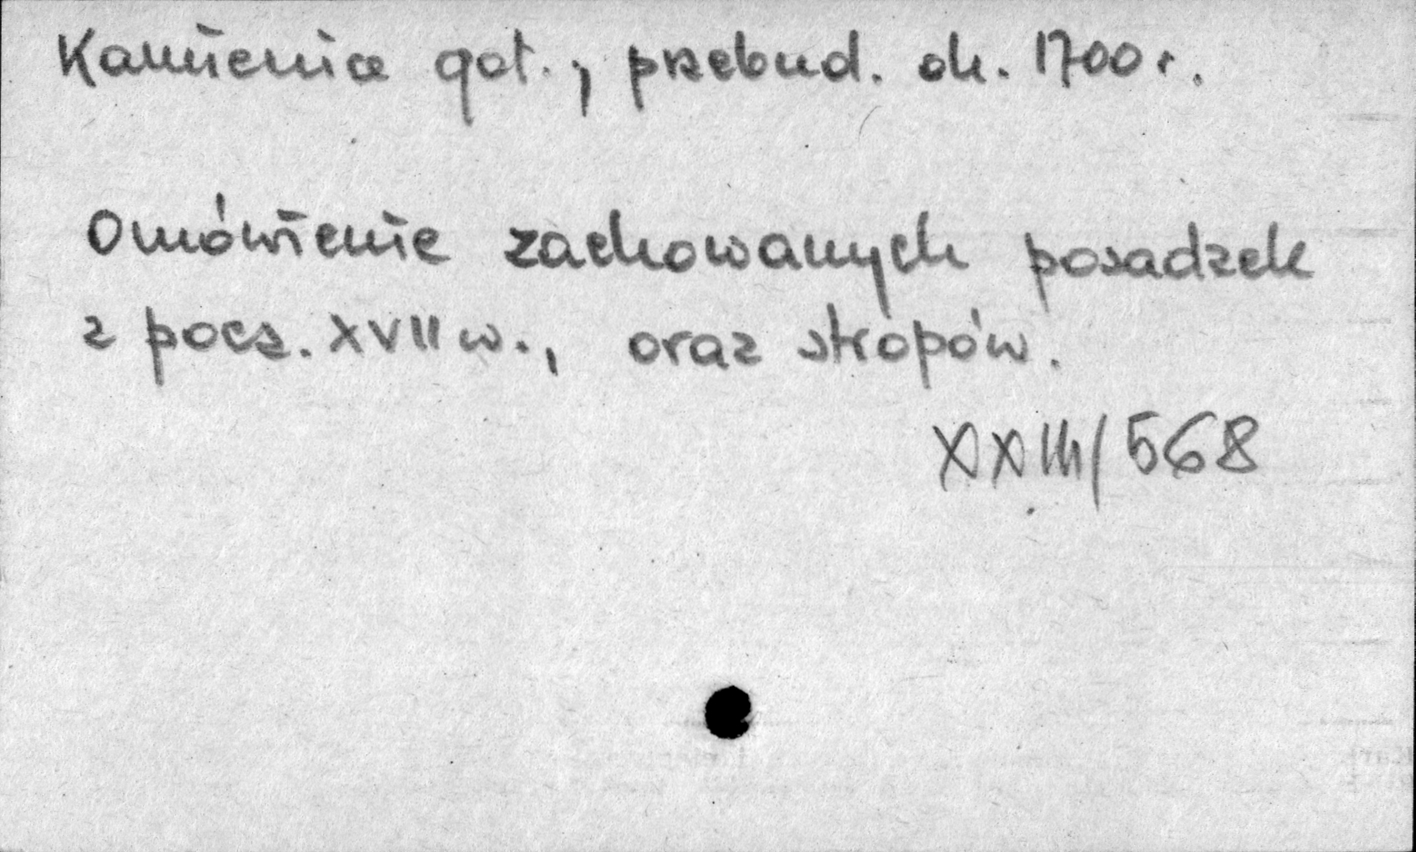 Kamienica got., przebud. ok. 1700 r.
Omówienie zachowanych posadzek
z pocz. XVII w., oraz stropów.
XXIII/568